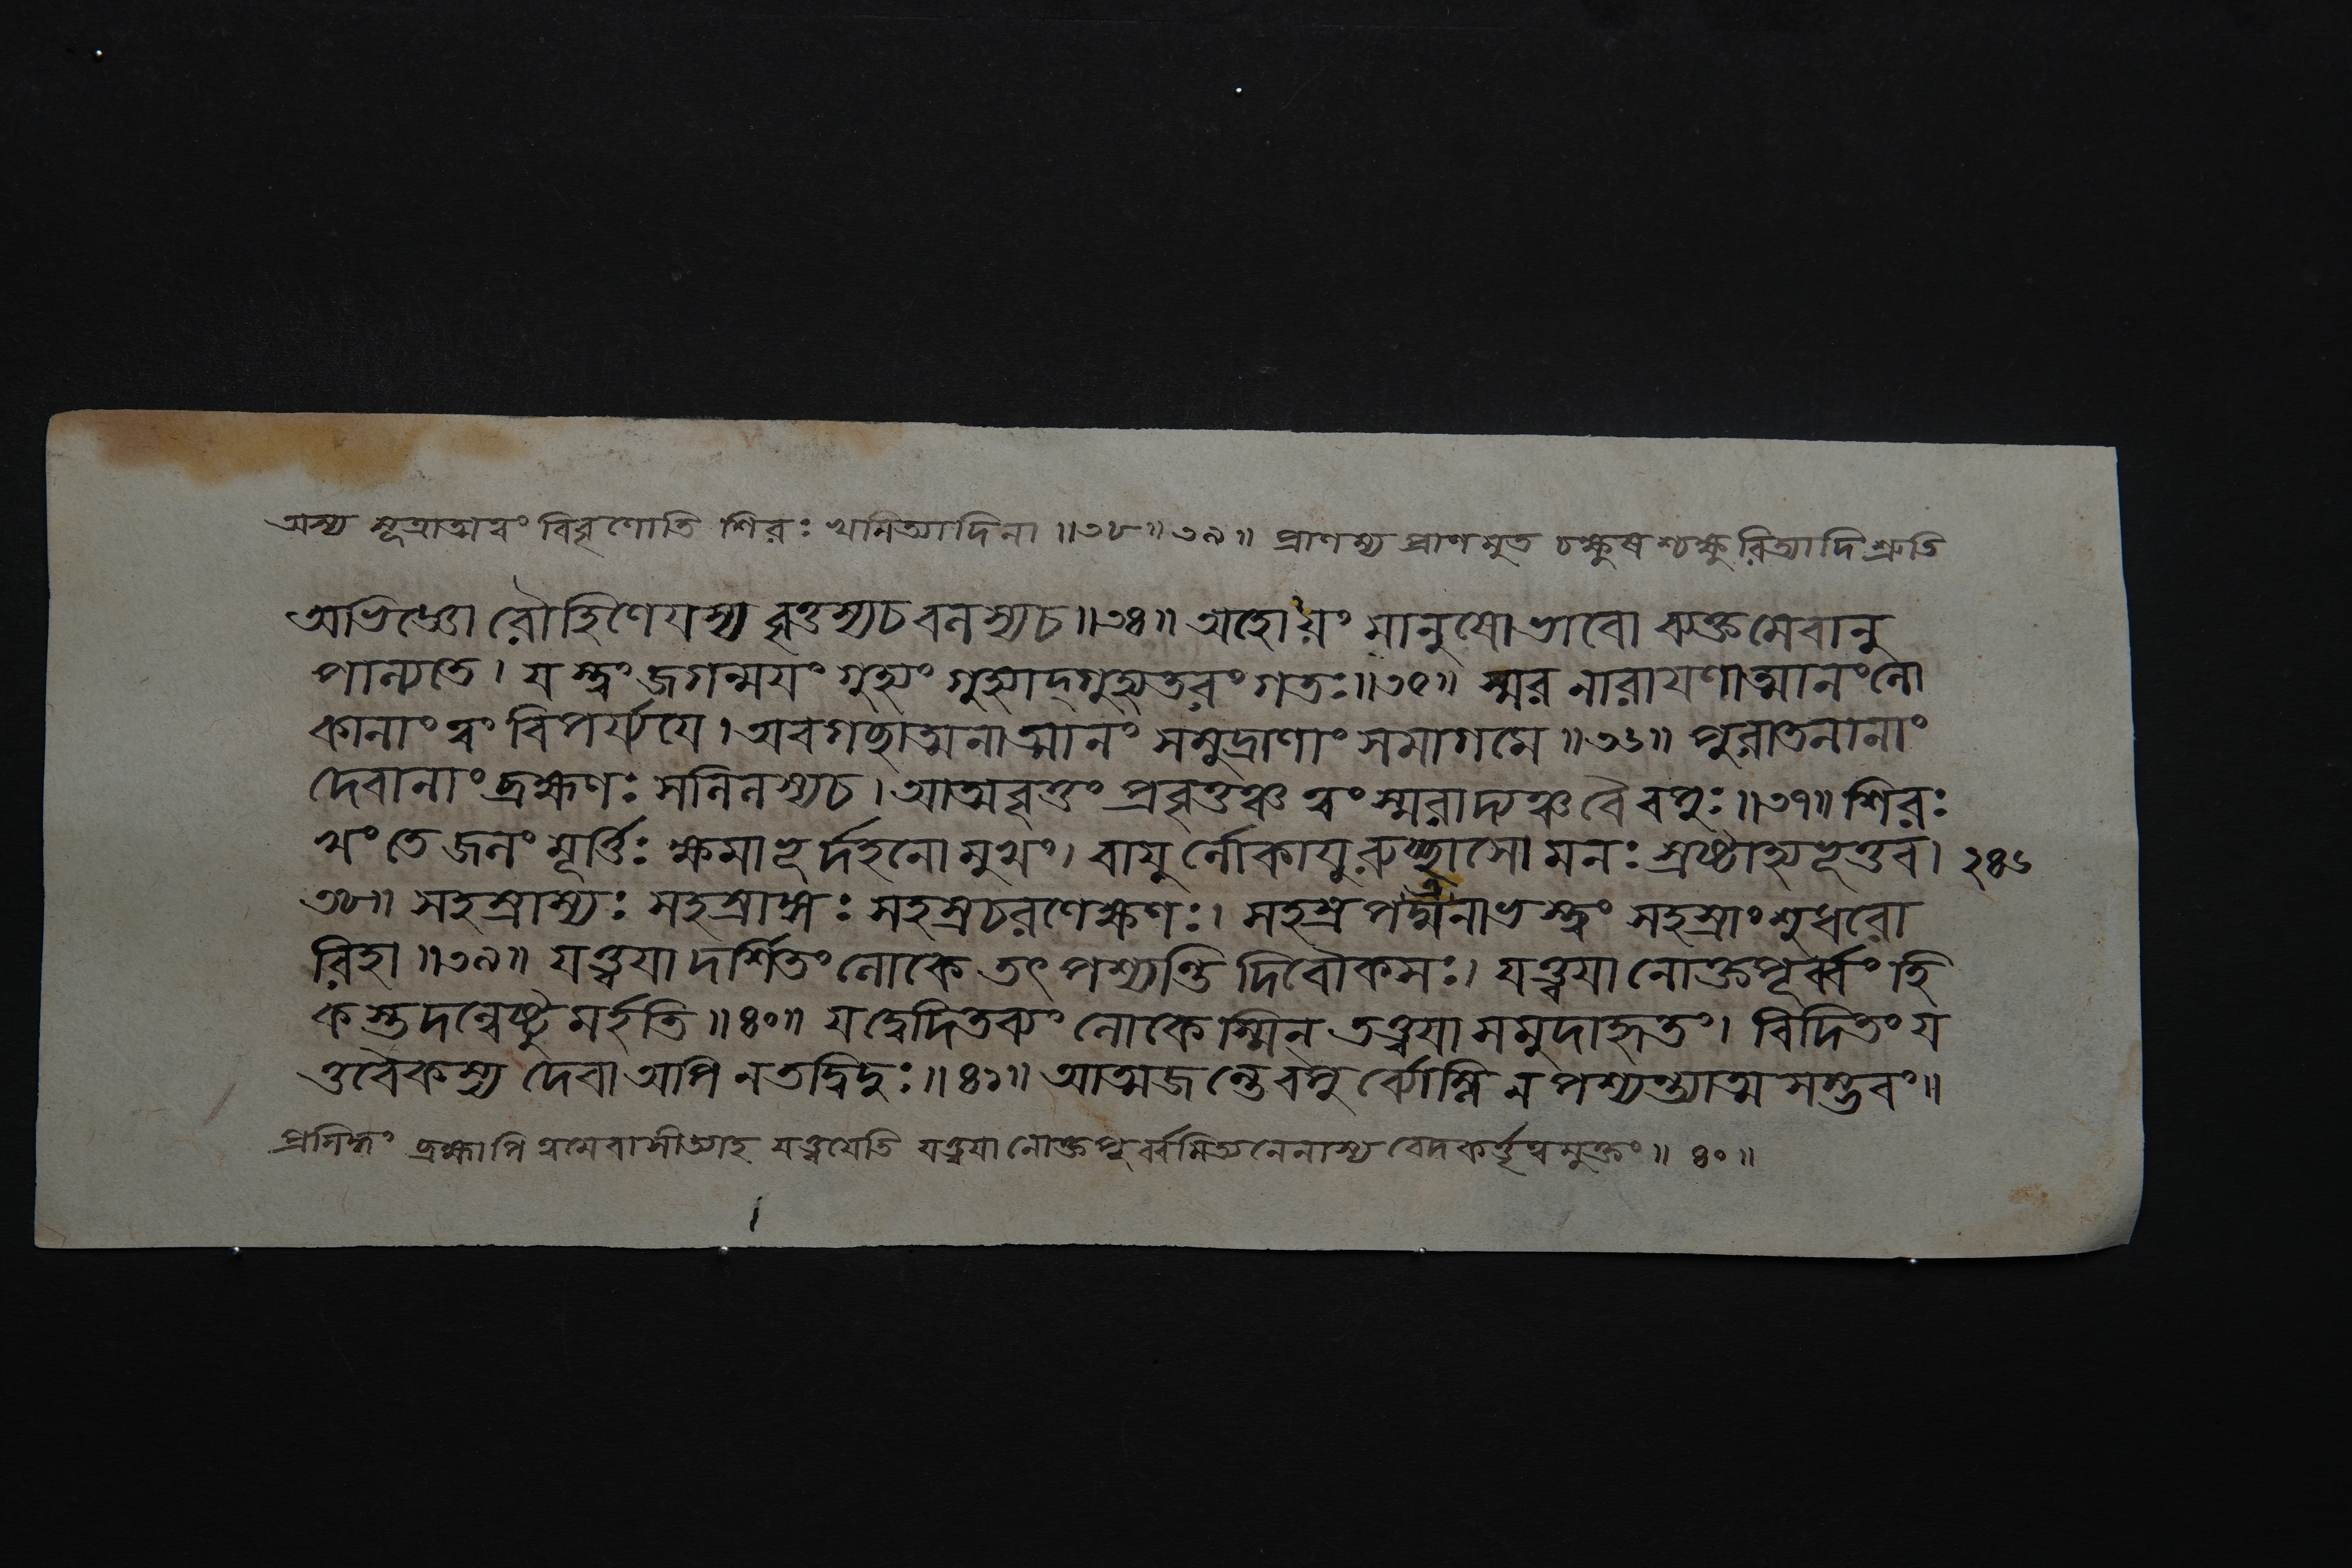 অস্য সূত্রাত্মত্বং বিবৃণোতি শিরঃ খমিত্যাদিনা ॥৩৮॥৩৯॥ প্রাণস্য প্রাণমুত চক্ষুষশ্চক্ষুরিত্যাদি শ্রুতি
অভিজ্ঞো রৌহিণেয়স্য বৃত্তস্যচ বলস্যচ ॥৩৪॥ অহোয়ং মানুষো ভাবো ব্যক্তমেবানু
পাল্যতে। যস্ত্বং জগন্ময়ং গুহ্যং গুহ্যাদ্‌গুহ্যতরং গতঃ॥৩৫॥ স্মর নারায়ণাত্মানং লো
কানাং ত্বং বিপর্য্যয়ে। অবগচ্ছাত্মনাত্মানং সমুদ্রাণাং সমাগমে ॥৩৬॥ পুরাতনানাং
দেবানাং ব্রহ্মণঃ সলিলস্যচ। আত্মবৃত্তং প্রবৃত্তঞ্চ ত্বং স্মরাদ্যঞ্চ বৈ বপুঃ॥৩৭॥ শিরঃ
খং তে জলং মূর্ত্তিঃ ক্ষমা ভূর্দহনো মুখং। বায়ুর্লোকায়ুরুচ্ছ্বাসো মনঃ স্রষ্টাহ্যভূত্তব। ২৪৬
৩৮॥ সহস্রাস্যঃ সহস্রাঙ্গঃ সহস্রচরণেক্ষণঃ। সহস্রপদ্মনাভস্ত্বং সহস্রাংশুধরো
রিহা ॥৩৯॥ যত্ত্বয়া দর্শিতং লোকে তৎ পশ্যন্তি দিবৌকসঃ। যত্ত্বয়া নোক্তপূর্ব্বং হি
কস্তদন্বেষ্টুমর্হতি ॥৪০॥ যদ্বেদিতব্যং লোকেস্মিন্ তত্ত্বয়া সমুদাহৃতং। বিদিতং য
ত্তবৈকস্য দেবা অপি ন তদ্বিদুঃ॥৪১॥ আত্মজন্তে বপুর্ব্যোম্নি ন পশ্যন্ত্যাত্মসম্ভবং॥
প্রসিদ্ধং ব্রহ্মাপি ত্বমেবাসীত্যাহ যত্ত্বয়েতি যত্ত্বয়ানোক্তপূর্ব্বমিত্যনেনাস্য বেদকর্ত্তৃত্বমুক্তং॥ ৪০॥